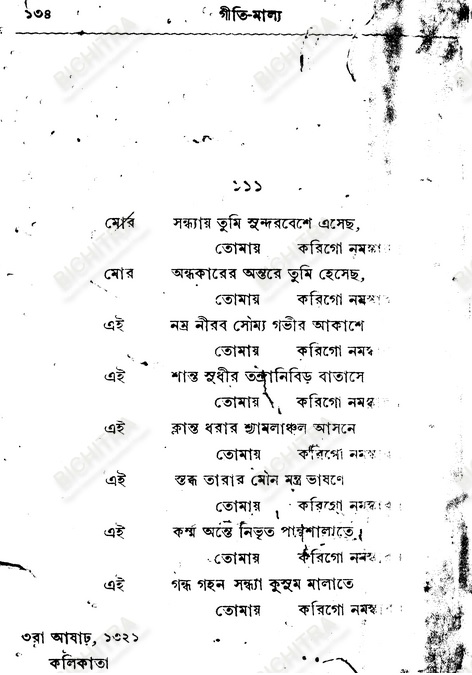 ১৩৪ গীতি-মাল্য
১১১
মোর সন্ধ্যায় তুমি সুন্দরবেশে এসেছ,
তোমায় করিগো নমস্কার
মোর অন্ধকারের অন্তরে তুমি হেসেছ,
তোমায় করিগো নমস্কার
এই নম্র নীরব সৌম্য গভীর আকাশে
তোমায় করিগো নমস্কার
এই শান্ত সুধীর তন্দ্রানিবিড় বাতাসে
তোমায় করিগো নমস্কার
এই ক্লান্ত ধরার শ্যামলাঞ্চল আসনে
তোমায় করিগো নমস্কার
এই স্তব্ধ তারার মৌন মন্ত্র ভাষণে
তোমায় করিগো নমস্কার
এই কর্ম্ম অন্তে নিভৃত পান্থশালাতে
তোমায় করিগো নমস্কার
এই গন্ধ গহন সন্ধ্যা কুসুম মালাতে
তোমায় করিগো নমস্কার
৩রা আষাঢ়, ১৩২১
কলিকাতা